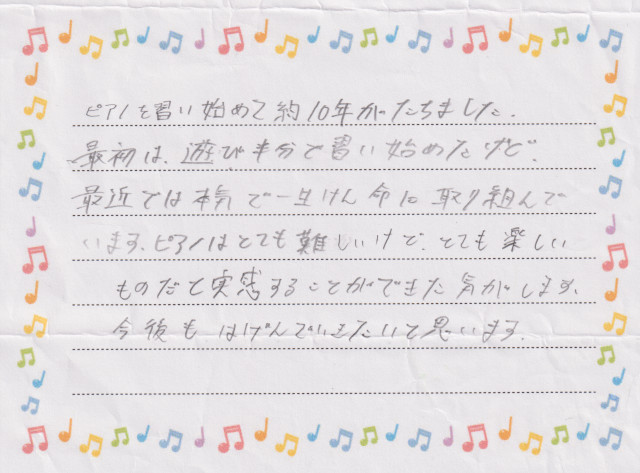 ピアノを習い始めて約10年がたちました。
最初は、遊び半分で習い始めたけど、
最近では本気で一生けん命に取り組んで
います。ピアノはとても難しいけど、とても楽しい
ものだと実感することができた気がします。
今後も、はげんでいきたいと思います。